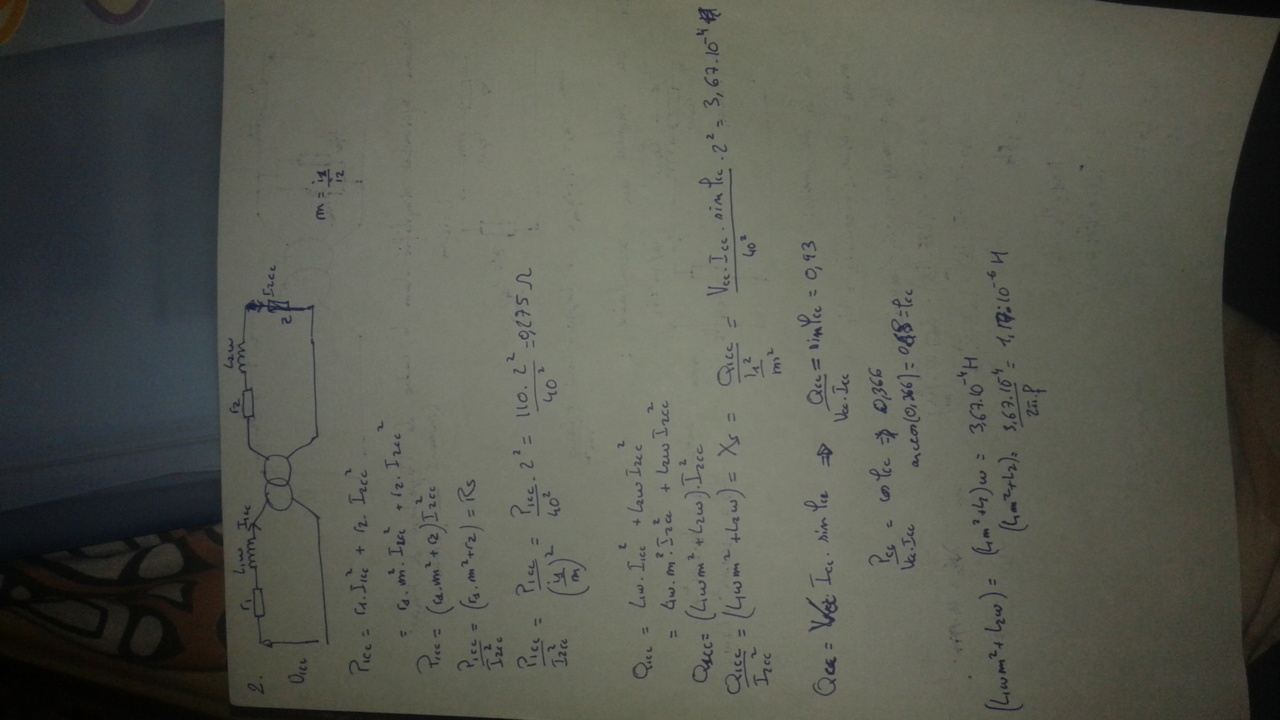 2.
r₁ L₁ω I₁cc r₂ L₂ω I₂cc
Q₁cc Z
m = i₁/i₂
P₁cc = r₁.I₁cc² + r₂.I₂cc²
= r₁.m².I₂cc² + r₂.I₂cc²
P₁cc = (r₁.m²+r₂)I₂cc²
P₁cc/I₂cc² = (r₁.m²+r₂) = Rs
P₁cc/I₂cc² = P₁cc/(i₁/m)² = P₁cc/40² . 2² = 110.2²/40² = 0,275 Ω
Q₁cc = L₁ω.I₁cc² + L₂ωI₂cc²
= L₁ω.m².I₂cc² + L₂ωI₂cc²
Q₁cc = (L₁ωm²+L₂ω).I₂cc²
Q₁cc/I₂cc² = (L₁ωm²+L₂ω) = Xs = Q₁cc/(I₁²/m²) = Vcc.Icc.sin φcc/40² . 2² = 3,67.10⁻⁴
Qcc = Vcc.Icc.sin φcc ⇒ Qcc/Vcc.Icc = sin φcc = 0,93
Pcc/Vcc.Icc = cos φcc ⇒ 0,366
arccos(0,366) = = φcc
(L₁ωm²+L₂ω) = (L₁m²+L₂)ω = 3,67.10⁻⁴H
(L₁m²+L₂) = 3,67.10⁻⁴/2π.f = 1,17.10⁻⁶ H